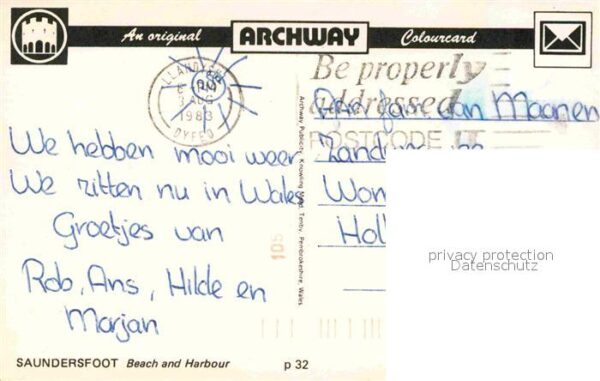 An original ARCHWAY Colourcard
LLANDYSUL
PM
AUG
1983
DYFED
Be properly
addressed
POSTCODE IT
We hebben mooi weer
We zitten nu in Wales
Groetjes van
Rob, Ans, Hilde en
Marjan
Archway Publicity, Knowling Mead, Tenby, Pembrokeshire, Wales.
105
Jan van Maanen
Zand
Won
Hol
privacy protection
Datenschutz
SAUNDERSFOOT Beach and Harbour p 32